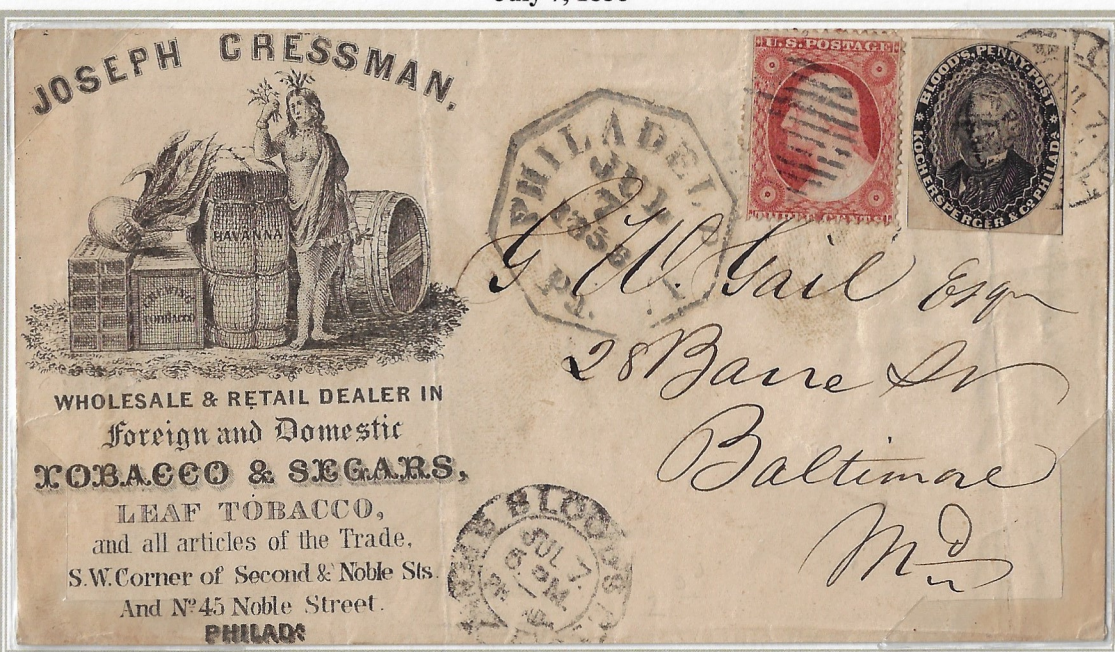 JOSEPH CRESSMAN,
HAVANNA
CHEWING
TOBACCO
WHOLESALE & RETAIL DEALER IN
Foreign and Domestic
TOBACCO & SEGARS,
LEAF TOBACCO,
and all articles of the Trade,
S.W. Corner of Second & Noble Sts.
And No. 45 Noble Street.
PHILADA
PHILADELP
JUL
7
1858
Pa.
U.S. POSTAGE
THREE CENTS
BLOOD'S PENNY POST
KOCHERSPERGER & CO. PHILADA
JUL 7
G W. Gail Esqr
28 Barre St
Baltimore
Md
BLOOD'S
JUL 7
PM